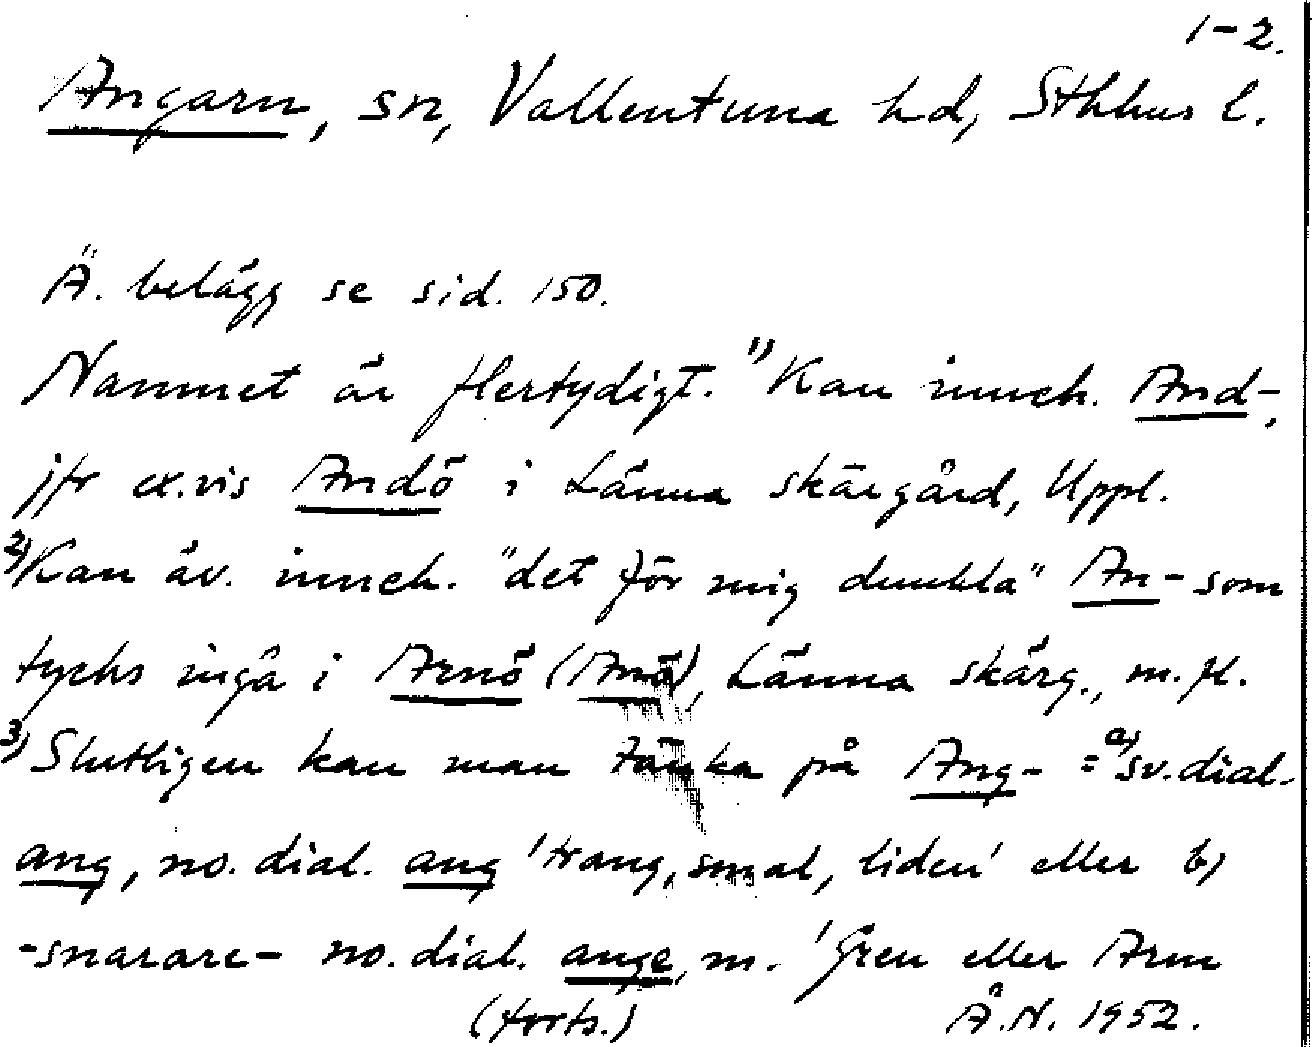 1-2.
Angarn, sn, Vallentuna hd, Sthlms l.
Ä. belägg se sid. 150.
Namnet är flertydigt. 1) Kan inneh. And-,
jfr ex.vis Andö i Länna skärgård, Uppl.
2) Kan äv. inneh. "det för mig dunkla" An- som
tycks ingå i Arnö (Anö), Länna skärg., m.fl.
3) Slutligen kan man tänka på Ang- = a) sv.dial.
ang, no. dial. ang 'trang, smal, liden' eller b)
-snarare- no. dial. ange, m. 'Gren eller Arm
(forts.) Å.N. 1952.